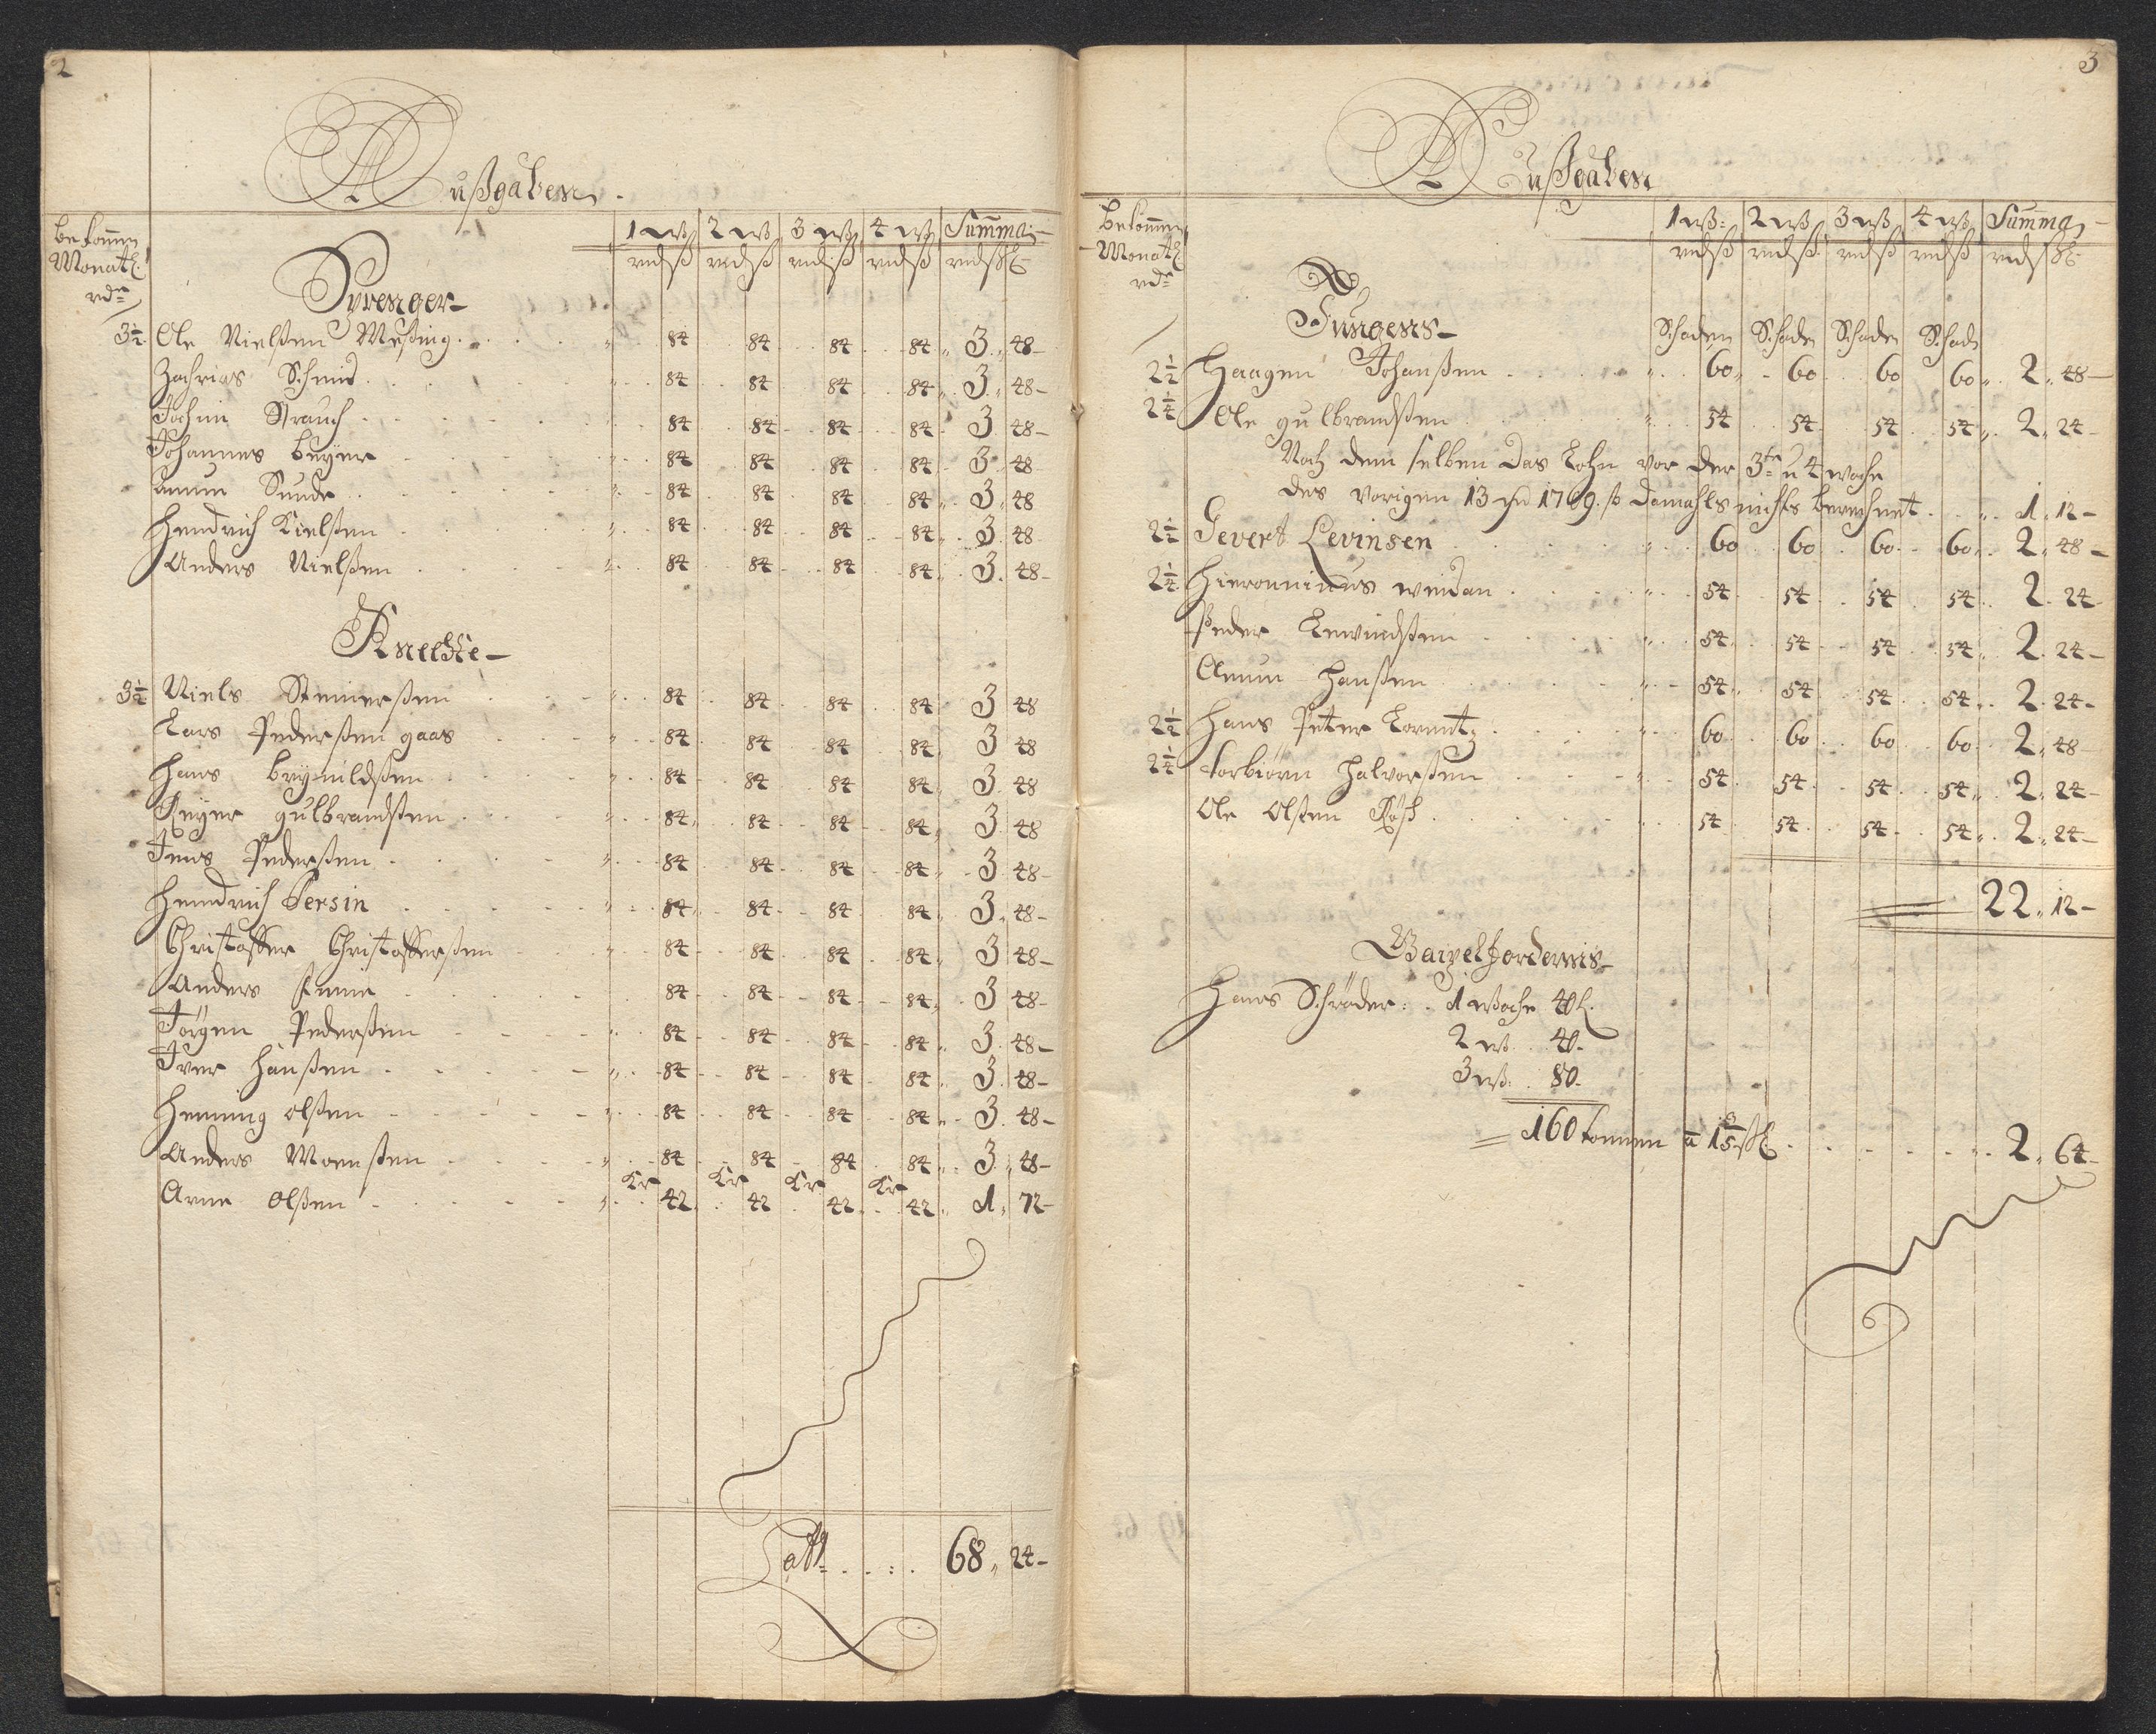 2
Außgaben
Bekommen Monatl. rdr
1 wß 2 wß 3 wß 4 wß Summa
rdß rdß rdß rdß rdß
Sprenger
3½ Ole Nielßen Meßing 84 84 84 84 3 48
Zachrias Schmid 84 84 84 84 3 48
Jochim Strauch 84 84 84 84 3 48
Johannes Beyer 84 84 84 84 3 48
Amun Sunde 84 84 84 84 3 48
Hendrich Kielßen 84 84 84 84 3 48
Anders Nielßen 84 84 84 84 3 48
Knechte
3½ Niels Steinerßen 84 84 84 84 3 48
Lars Pederßen gaas 84 84 84 84 3 48
Hans Brynildßen 84 84 84 84 3 48
Reyer gulbrandßen 84 84 84 84 3 48
Jens Pederßen 84 84 84 84 3 48
Hendrich Persin 84 84 84 84 3 48
Christoffer Christofferßen 84 84 84 84 3 48
Anders 84 84 84 84 3 48
Jörgen Pederßen 84 84 84 84 3 48
Iver Hanßen 84 84 84 84 3 48
Henning olßen 84 84 84 84 3 48
Anders Monßen 84 84 84 84 3 48
Kr Kr Kr Kr
Arne olßen 42 42 42 42 1 72
Latt 68 24
3
Außgaben
Bekommen Monatl. rdr
1 wß 2 wß 3 wß 4 wß Summa
rdß rdß rdß rdß rdß
Jungens
Schaden Schaden Schaden Schad
2½ Haagen Johanßen 60 60 60 60 2 48
2¼ Ole gulbrandßen 54 54 54 54 2 24
Noch dem selben das Lohn vor der 3te u 4 woche
des vorigen 13 1709. so damahls nichts berechnet 1 12
2½ Gevert Levinsen 60 60 60 60 2 48
2¼ Hieronnimus weidan 54 54 54 54 2 24
Peder Lewindßen 54 54 54 54 2 24
Amun Hanßen 54 54 54 54 2 24
2½ Hans Peter Lorentz 60 60 60 60 2 48
2¼ Torbiörn Halvorßen 54 54 54 54 2 24
Ole olßen 54 54 54 54 2 24
22 12
Gaipelfordernis
Hans Schröder: 1 woche 40
2 wß 40
3 wß 80
160 tonnen a 1 3/5 ß 2 64